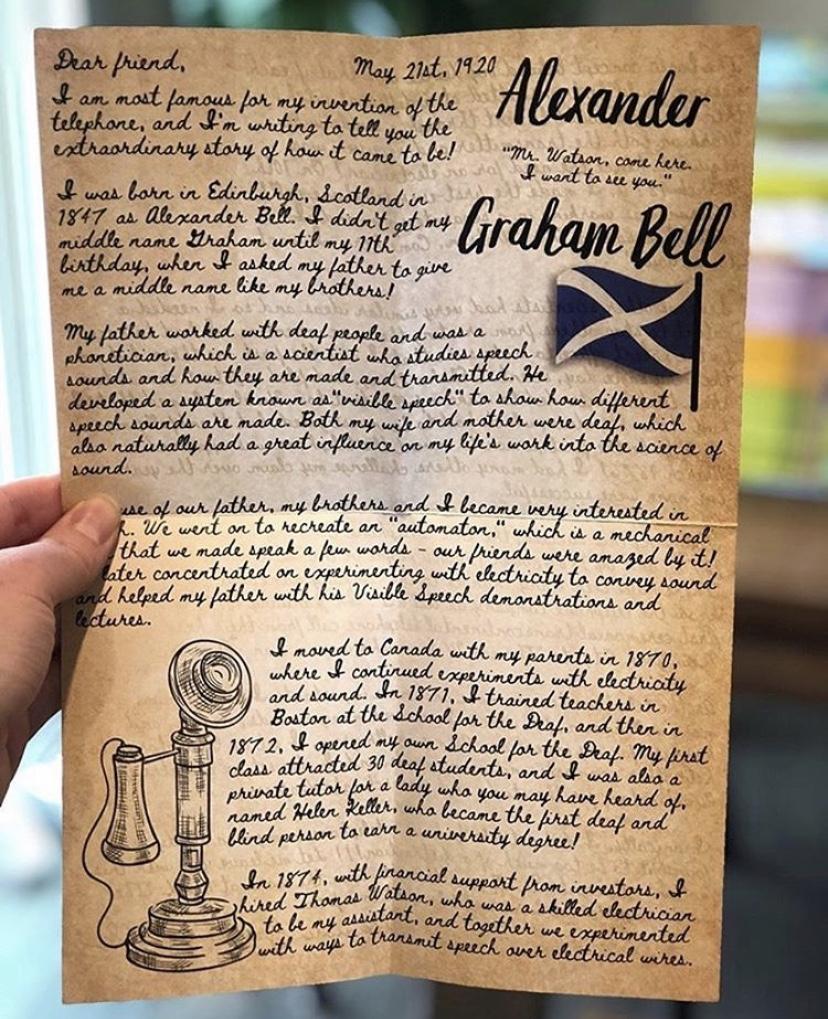 Dear friend,
May 21st, 1920
Alexander
"Mr. Watson, come here.
I want to see you."
Graham Bell
I am most famous for my invention of the
telephone, and I'm writing to tell you the
extraordinary story of how it came to be!
I was born in Edinburgh, Scotland in
1847 as Alexander Bell. I didn't get my
middle name Graham until my 11th
birthday, when I asked my father to give
me a middle name like my brothers!
My father worked with deaf people and was a
phonetician, which is a scientist who studies speech
sounds and how they are made and transmitted. He
developed a system known as "visible speech" to show how different
speech sounds are made. Both my wife and mother were deaf, which
also naturally had a great influence on my life's work into the science of
sound.
use of our father, my brothers and I became very interested in
h. We went on to recreate an "automaton," which is a mechanical
that we made speak a few words - our friends were amazed by it!
later concentrated on experimenting with electricity to convey sound
and helped my father with his Visible Speech demonstrations and
lectures.
I moved to Canada with my parents in 1870,
where I continued experiments with electricity
and sound. In 1871, I trained teachers in
Boston at the School for the Deaf, and then in
1872, I opened my own School for the Deaf. My first
class attracted 30 deaf students, and I was also a
private tutor for a lady who you may have heard of,
named Helen Keller, who became the first deaf and
blind person to earn a university degree!
In 1874, with financial support from investors, I
hired Thomas Watson, who was a skilled electrician
to be my assistant, and together we experimented
with ways to transmit speech over electrical wires.